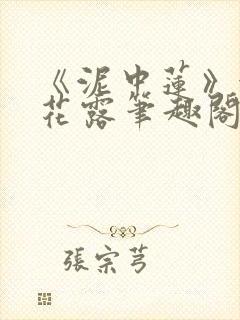 《泥中蓮》
花露筆趣閣
張宗芎